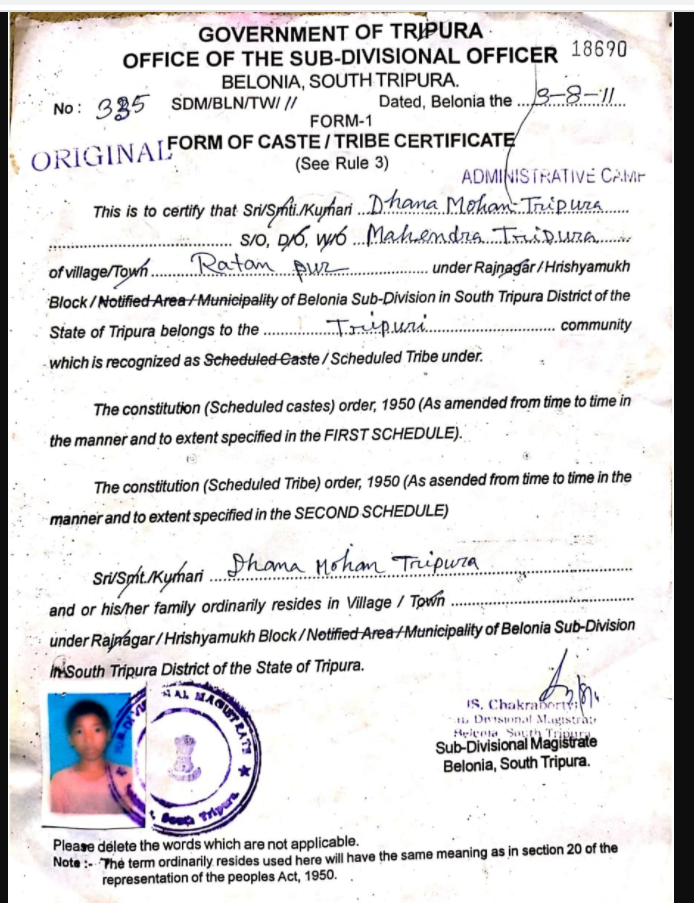 GOVERNMENT OF TRIPURA
OFFICE OF THE SUB-DIVISIONAL OFFICER 18690
BELONIA, SOUTH TRIPURA.
No : 335 SDM/BLN/TW/ // Dated, Belonia the ...3-8-11......
FORM-1
ORIGINAL FORM OF CASTE / TRIBE CERTIFICATE
(See Rule 3)
ADMINISTRATIVE CAMP
This is to certify that Sri/Smti./Kumari ...Dhana Mohan Tripura......
.................................... S/O, D/O, W/O ...Mahendra Tripura......
of village/Town .........Ratan pur.................. under Rajnagar / Hrishyamukh
Block / Notified Area / Municipality of Belonia Sub-Division in South Tripura District of the
State of Tripura belongs to the ...............Tripuri........................... community
which is recognized as Scheduled Caste / Scheduled Tribe under.
The constitution (Scheduled castes) order, 1950 (As amended from time to time in
the manner and to extent specified in the FIRST SCHEDULE).
The constitution (Scheduled Tribe) order, 1950 (As asended from time to time in the
manner and to extent specified in the SECOND SCHEDULE)
Sri/Smt./Kumari ...Dhana Mohan Tripura..............................
and or his/her family ordinarily resides in Village / Town ....................................
under Rajnagar / Hrishyamukh Block / Notified Area / Municipality of Belonia Sub-Division
in South Tripura District of the State of Tripura.
MAGISTRATE
South Tripura
(S. Chakraborty)
Divisional Magistrate
Belonia, South Tripura
Sub-Divisional Magistrate
Belonia, South Tripura.
Please delete the words which are not applicable.
Note :- The term ordinarily resides used here will have the same meaning as in section 20 of the
representation of the peoples Act, 1950.